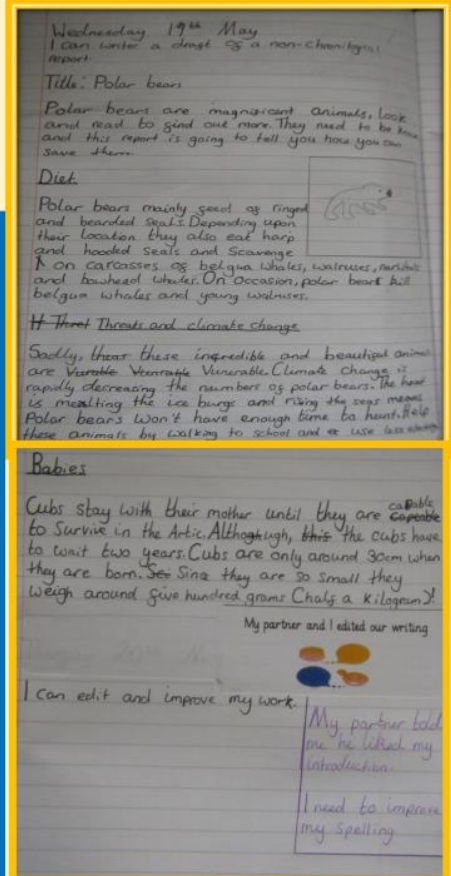 Wednesday 19th May
I can writer a dragt of a non-chronilogical
report.
Title: Polar bears
Polar bears are magnigicant animals, look
and read to gind out more. They need to be
and this report is going to tell you how you can
save them.
Diet
Polar bears mainly geed og ringed
and bearded seals. Depending upon
their location they also eat harp
and hooded seals and Scavenge
on carcasses og belgua whales, walruses, narwhals
and bowhead whales. On occasion, polar bears kill
belgua whales and young walruses.
H Thret Threats and climate change
Sadly, thear these incredible and beautigul animals
are Vunerable. Climate change is
rapidly decreasing the numbers og polar bears. The heat
is melting the ice burgs and rising the seas means
Polar bears won't have enough time to hunt. Help
these animals by walking to school and or use less
Babies
Cubs stay with their mother until they are capable capeable
to survive in the Artic. Although, this the cubs have
to wait two years. Cubs are only around 30cm when
they are born. Sci Sinc they are so small they
weigh around give hundred grams (halg a kilogram)!
My partner and I edited our writing
I can edit and improve my work.
My partner told
me he liked my
introduction.
I need to improve
my spelling